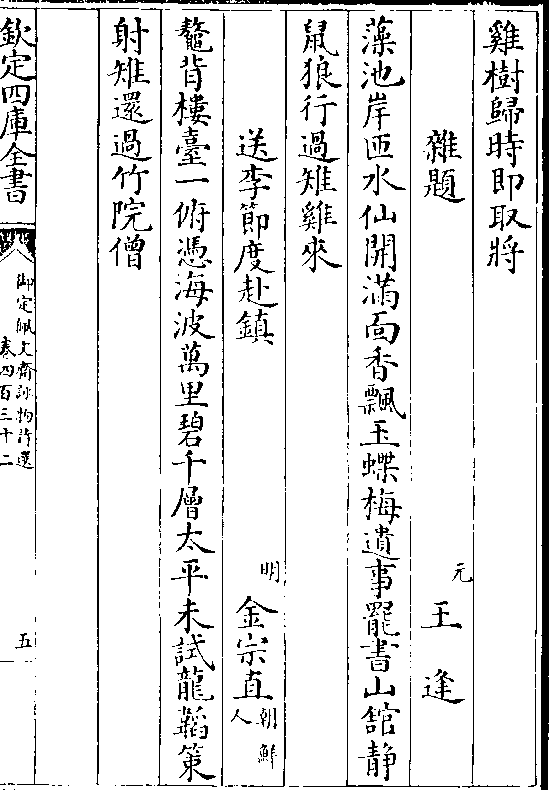 雞樹歸時即取將
雜題
元 王逢
藻池岸匝水仙開滿面香飄玉蝶梅遺事罷書山館静
鼠狼行過雉雞來
送李節度赴鎮
明 金宗直 朝鮮人
鼇背樓臺一俯憑海波萬里碧千層太平未試龍韜策
射雉還過竹院僧
欽定四庫全書
御定佩文齋詠物詩選
卷四百三十二
五